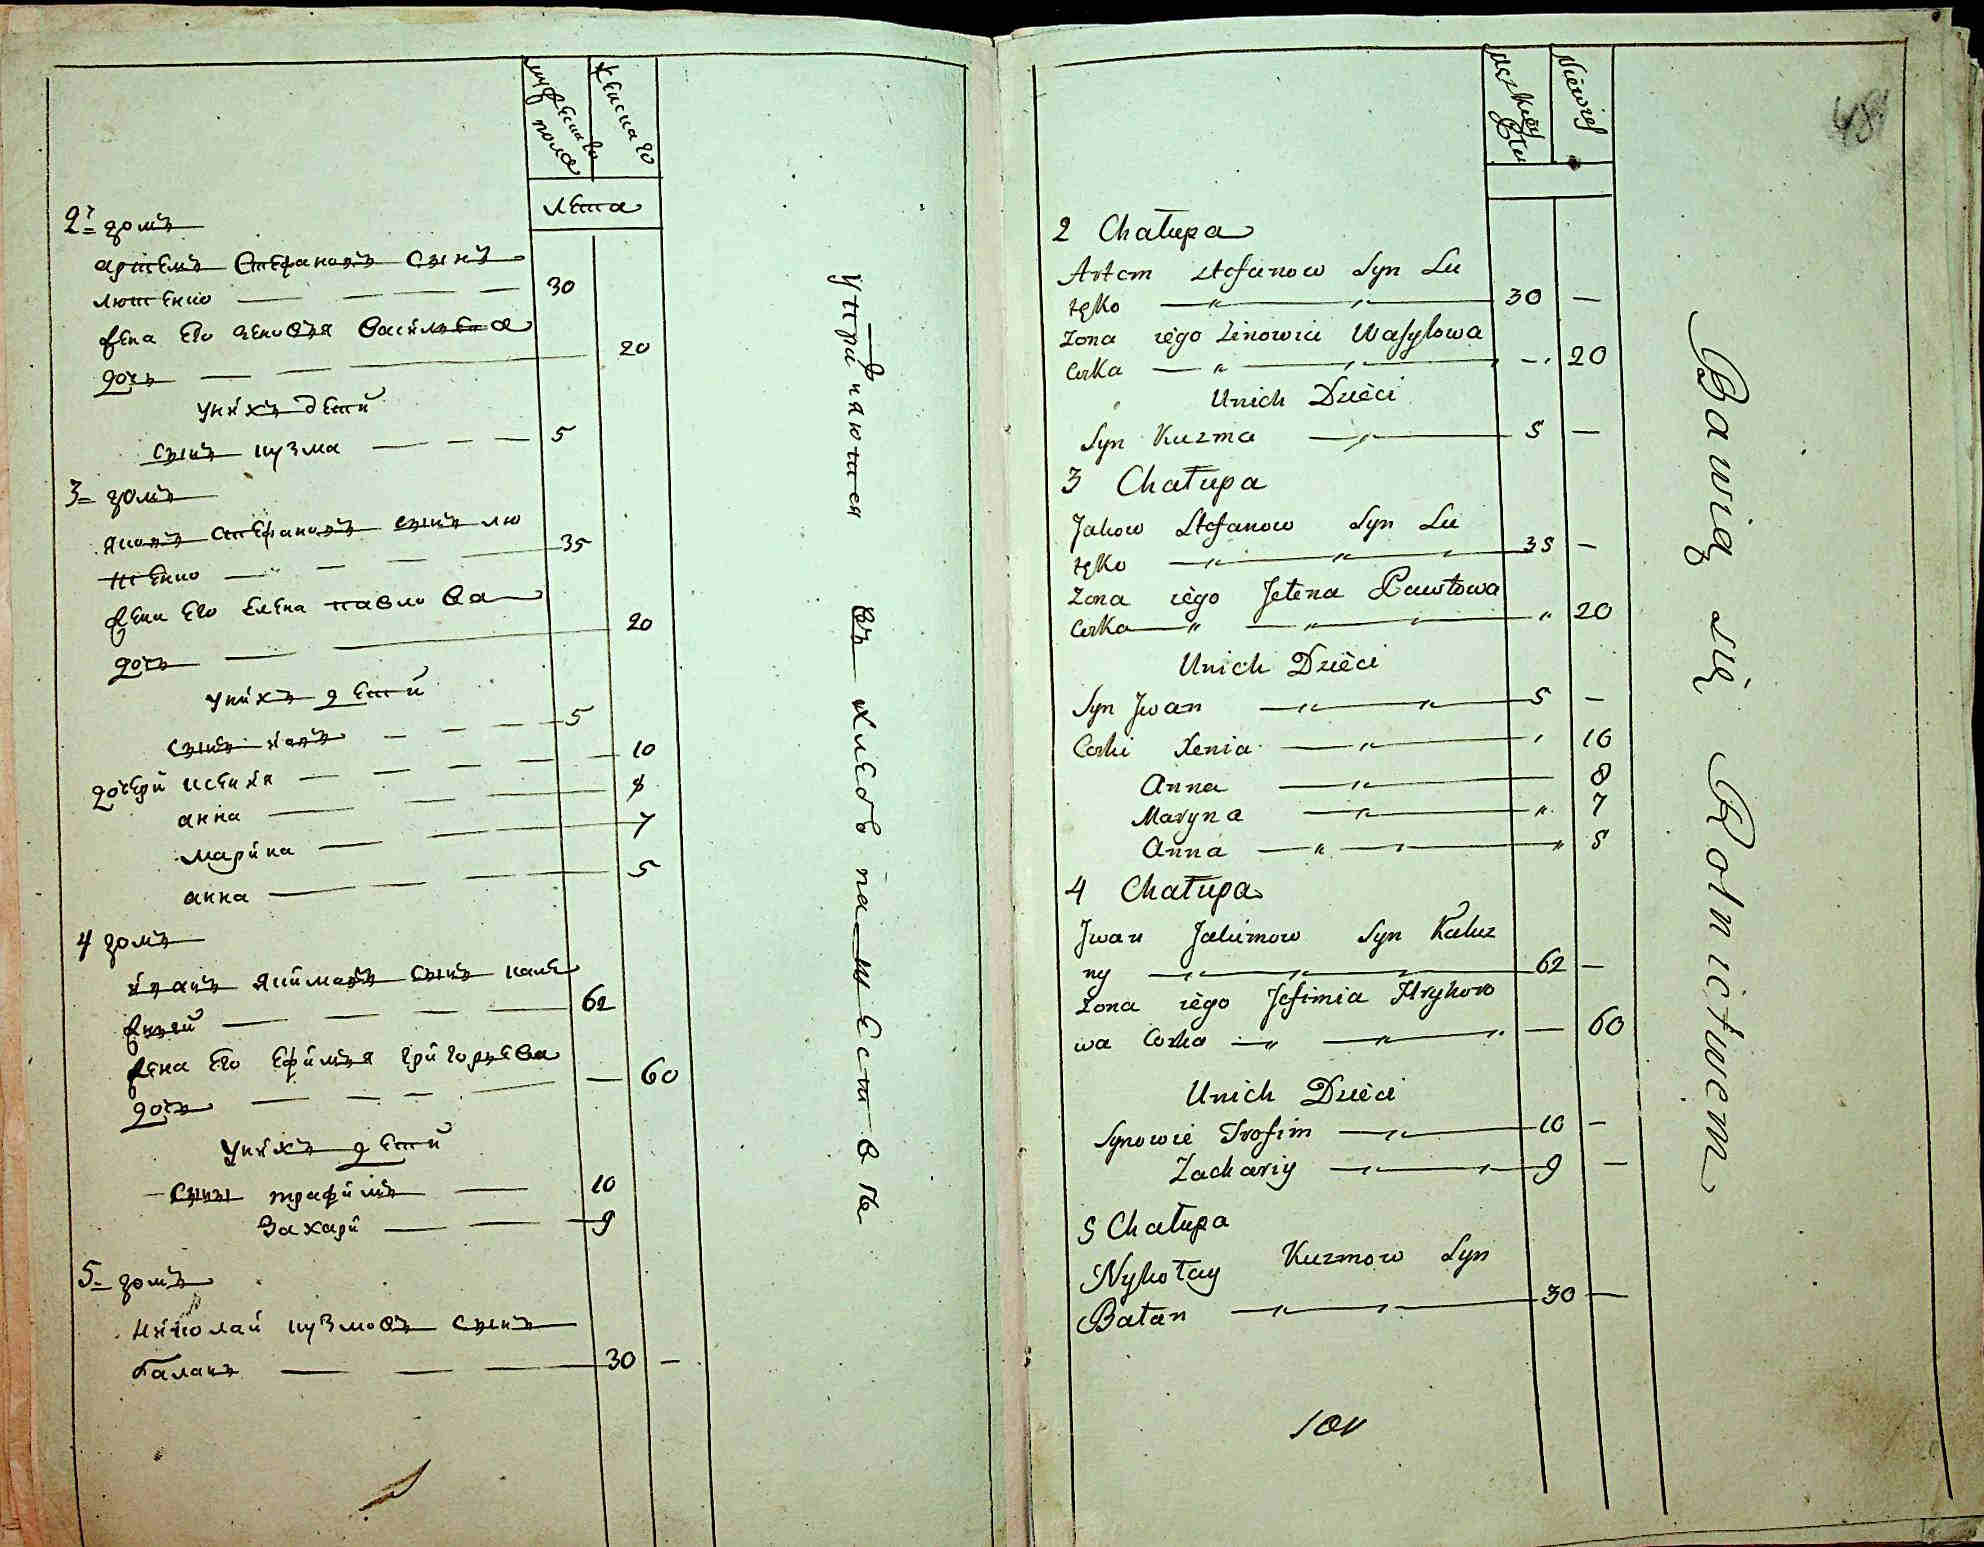 мужеска
пола
женска го
лета
2й домъ
артемъ Стефановъ сынъ
лютенко — — — — 30
жена его зеновия василева
дочь — — — 20
у нихъ дети
сынъ кузма — — — 5
3= домъ
яковъ стефановъ сынъ лю
тенко — — — — 35
жена его елена павлова
дочь — — 20
у нихъ дети
сынъ иванъ — — — — 5
дочери ксения — — — — 10
анна — — — 8
марина — — — 7
анна — — — — 5
4 домъ
иванъ якимовъ сынъ кале
жный — — — — 62
жена его ефимия григорьева
дочь — — — — — 60
у нихъ дети
сыны трафимъ — 10
Захари — — — 9
5= домъ
николай кузмовъ сынъ
баланъ — — — 30 —
упражняются въ хлебопашестве
481
Męzkiey
Płci
Niewies
2 Chałupa
Artem Stefanow Syn Lu
tęko — 30 —
Zona iego Zinowia Wasylowa
Corka — 20
Unich Dzieci
Syn Kuzma — 5 —
3 Chałupa
Jakow Stefanow Syn Lu
tęko — 35 —
Zona iego Jełena Pawłowa
Corka — 20
Unich Dzieci
Syn Jwan — 5 —
Corki Xenia — 10
Anna — 8
Maryna — 7
Anna — 5
4 Chałupa
Jwan Jakimow Syn Kaluz
ny — 62 —
Zona iego Jefimia Hryhoro
wa Corka — — 60
Unich Dzieci
Synowie Trofim — 10 —
Zachariy — 9 —
5 Chałupa
Nykołay Kuzmow Syn
Bałan — 30 —
Bawią się Rolnictwem